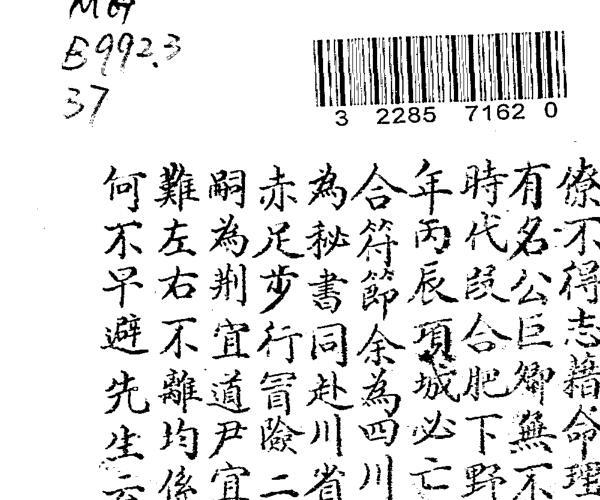 MG
E992.3
37
3 2285 7162 0
僚不得志藉命理
有名公巨卿無不
時代段合肥下野
年丙辰項城必亡
合符節余為四川
為秘書同赴川省
赤足步行冒險二
嗣為荆宜道尹宜
難左右不離均係
何不早避先生云